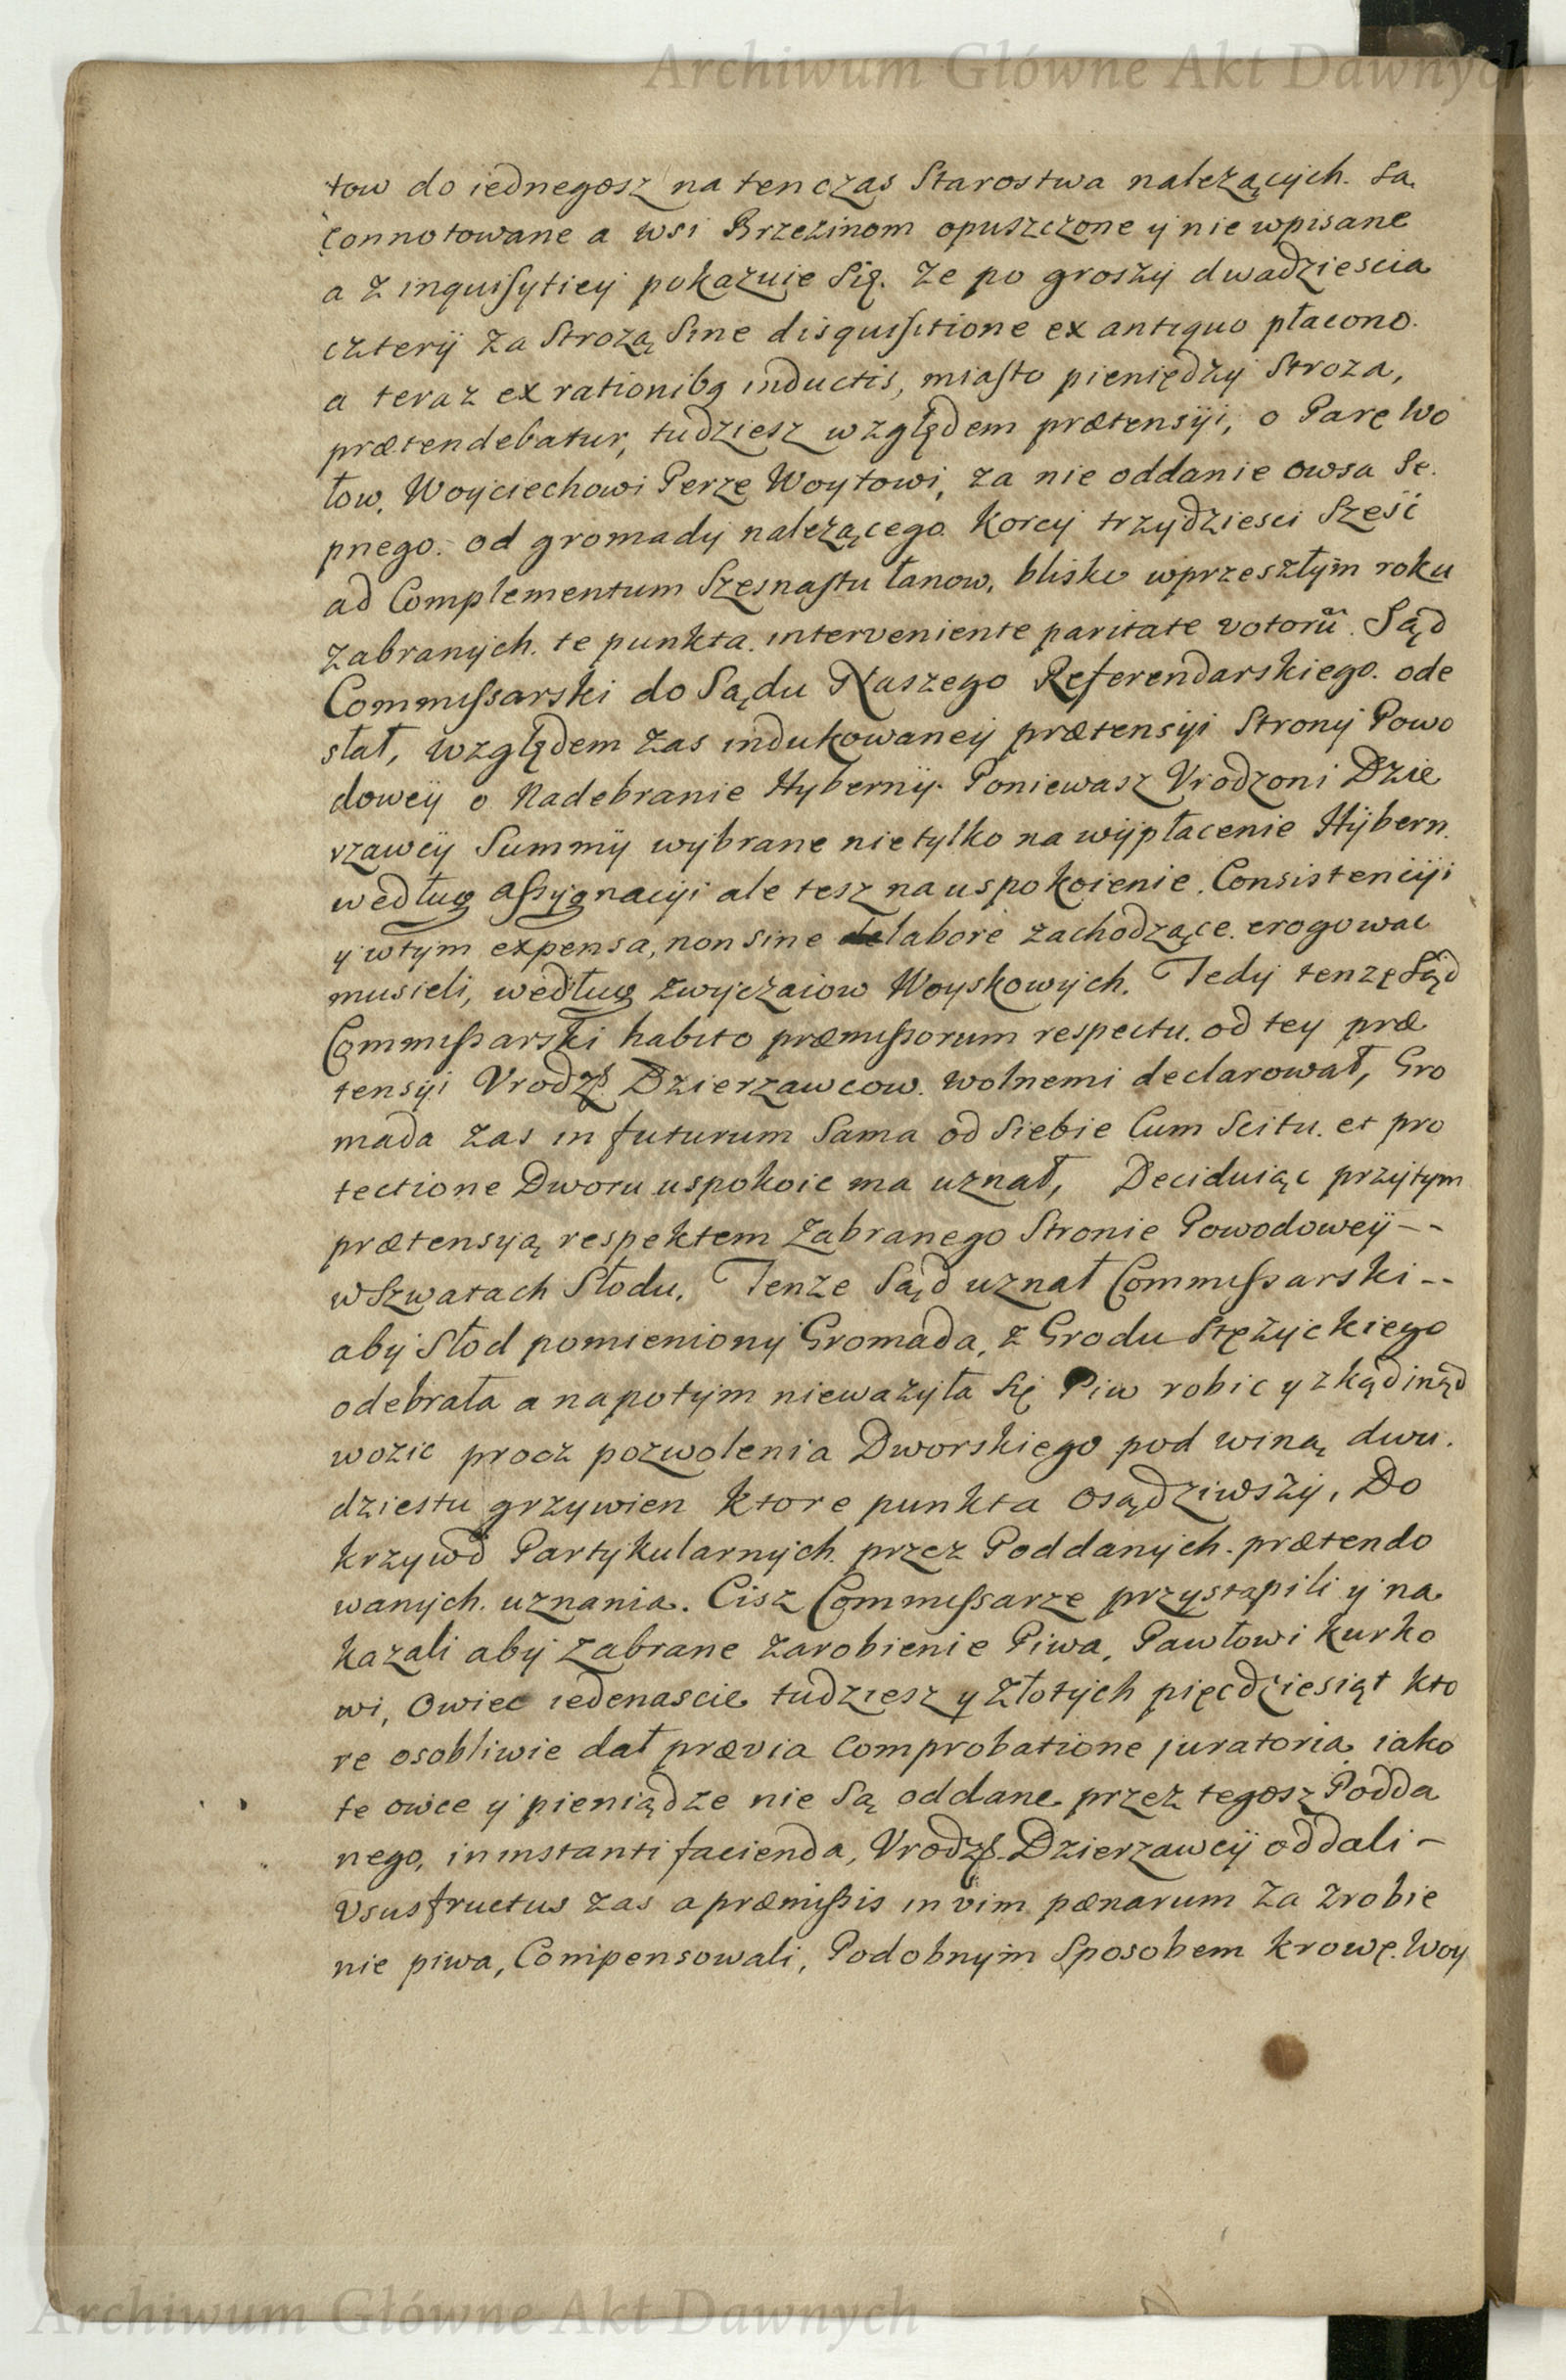 Archiwum Główne Akt Dawnych
tow do iednegosz na ten czas Starostwa nalezących. są
connotowane a wsi Brzezinom opuszczone y nie wpisane
a z inquisyticy pokazuie się. ze po groszy dwadziescia
cztery za Strozą sine disquisitione ex antiquo płacono.
a teraz ex rationibq inductis, miasto pieniędzy Stroza,
prætendebatur, tudziesz względem prætensyi, o Parę Wo
łow, Woyciechowi Perze Woytowi, za nie oddanie owsa Se.
pnego. od gromady nalezącego. korcy trzydziesci Szesć
ad Complementum Szesnastu łanow, blisko w przeszłym roku
zabranych. te punkta. interveniente paritate votorũ. Sąd
Commissarski do Sądu Naszego Referendarskiego. ode
słał, względem zas indukowaney prætensyi Strony Powo
dowey o Nadebranie Hyberny. Poniewasz Vrodzoni Dzie
rzawcy Summy wybrane nie tylko na wypłacenie Hybern.
według assygnacyi ale tesz na uspokoienie. Consistencyi
y w tym expensa, non sine labore zachodzące. erogowac
musieli, według zwyczaiow Woyskowych. Tedy tenze Sąd
Commissarski habito præmissorum respectu. od tey præ
tensyi Vrodz. Dzierzawcow. wolnemi declarował, Gro
mada zas in futurum sama od siebie Cum Scitu. et pro
tectione Dworu uspokoic ma uznał, Deciduiąc przytym
prætensyą respektem Zabranego Stronie Powodowey --
w Szwarach Słodu. Tenze Sąd uznał Commissarski --
aby Słod pomieniony Gromada, z Grodu Stężyckiego
odebrała a napotym niewazyła się Piw robic y zkąd inąd
wozic procz pozwolenia Dworskiego pod winą dwu.
dziestu grzywien ktore punkta osądziwszy, Do
krzywd Partykularnych. przez Poddanych. prætendo
wanych. uznania. Cisz Commissarze przystąpili y na
kazali aby zabrane zarobienie Piwa, Pawłowi kurko
wi, Owiec iedenascie tudziesz y złotych pięcdziesiąt kto
re osobliwie dał prævia comprobatione juratoria iako
te owce y pieniądze nie są oddane przez tegosz Podda
nego, in instanti facienda, Vrodz. Dzierzawcy oddali -
Vsusfructus zas a præmissis in vim pænarum za zrobie
nie piwa, Compensowali, Podobnym Sposobem krowę. Woy
Archiwum Główne Akt Dawnych